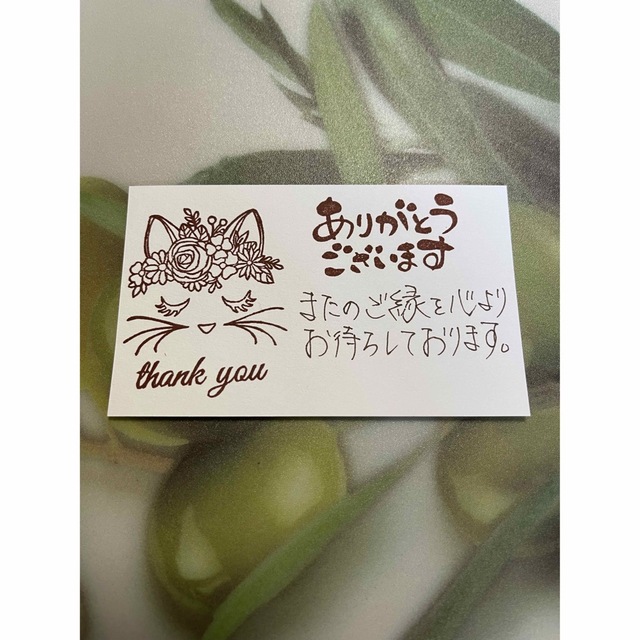 ありがとう
ございます
またのご縁を心より
お待ちしております。
thank you